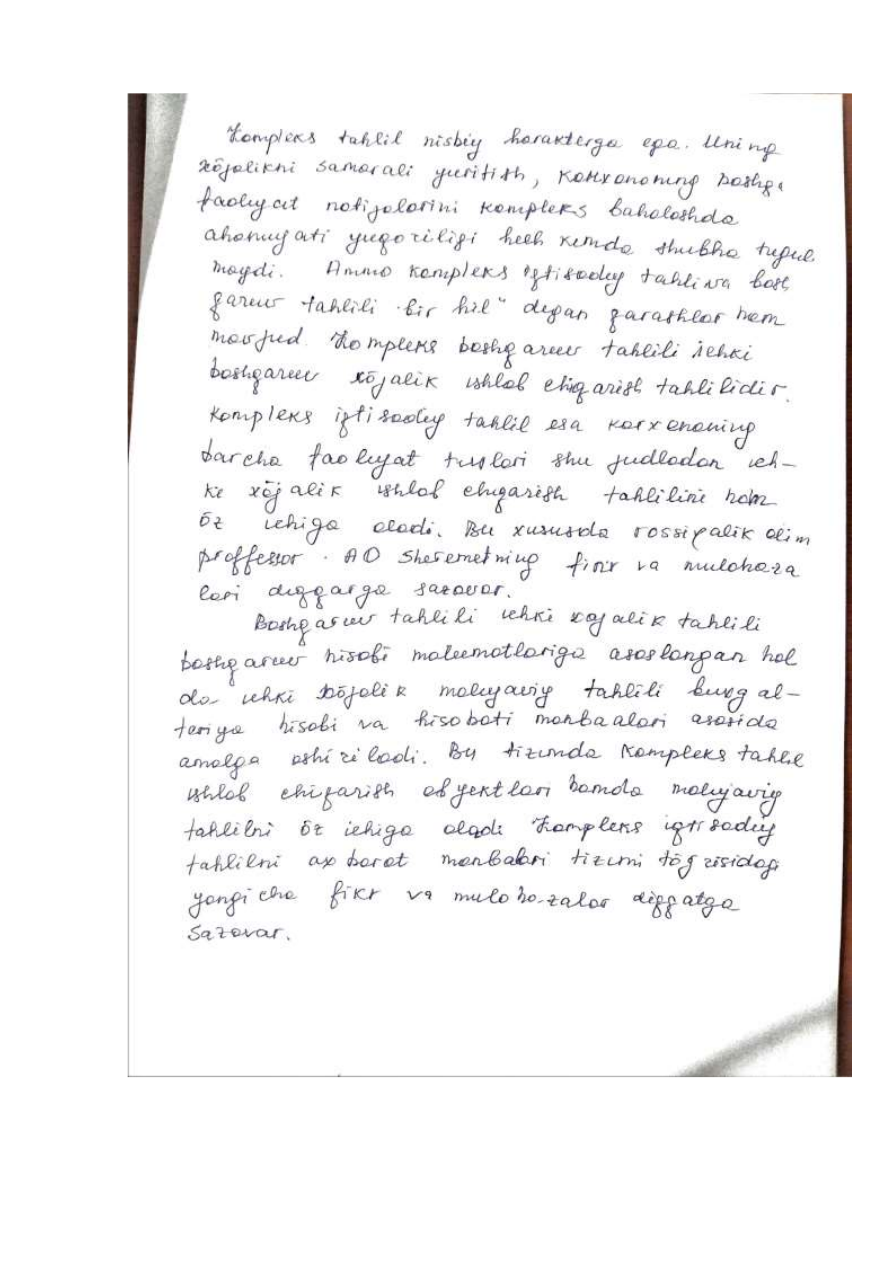 Kompleks tahlil nisbiy harakterga ega. Uning
xõjalikni samarali yuritish, korxonaning boshqa
faoliyat natijalarini kompleks baholashda
ahamiyati yuqoriligi hech kimda shubha tug'ul
maydi. Ammo kompleks iqtisodiy tahlil va bosh
qaruv tahlili "bir hil" degan qarashlar ham
mavjud. Kompleks boshqaruv tahlili ichki
boshqaruv xõjalik ishlab chiqarish tahlilidir.
Kompleks iqtisodiy tahlil esa korxonaning
barcha faoliyat turlari shu judladan ich-
ki xõjalik ishlab chiqarish tahlilini ham
õz ichiga oladi. Bu xususda rossiyalik olim
proffessor. AD Sheremetning fikr va mulohaza
lari diqqatga sazovar.
Boshqaruv tahlili ichki xojalik tahlili
boshqaruv hisobi malumotlariga asoslangan hol
da ichki xõjalik moliyaviy tahlili buxgal-
teriya hisobi va hisoboti manbaalari asosida
amalga oshiriladi. Bu tizimda Kompleks tahlil
ishlab chiqarish obyektlari hamda moliyaviy
tahlilni õz ichiga oladi Kompleks iqtisodiy
tahlilni axborot manbalari tizimi tõg'risidagi
yangicha fikr va mulohazalar diqqatga
sazovar.